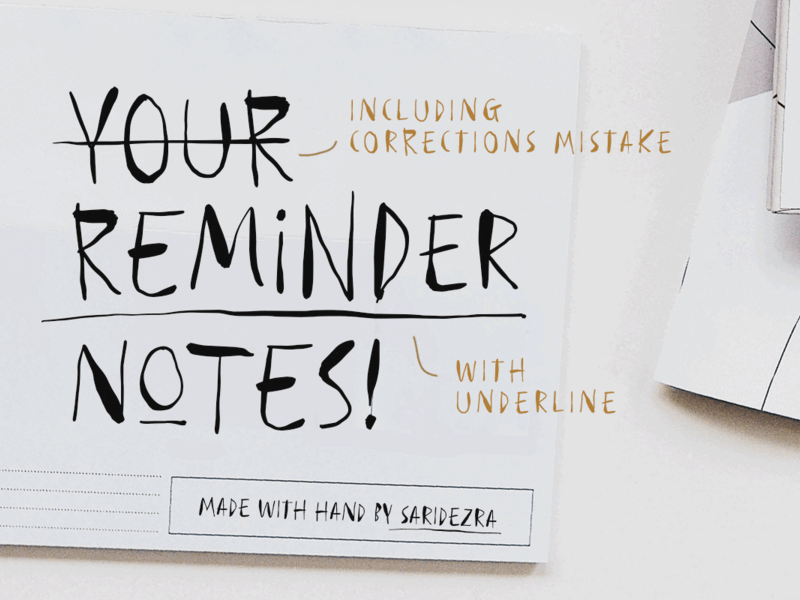 YOUR
INCLUDING
CORRECTIONS MISTAKE
REMINDER
NOTES!
WITH
UNDERLINE
MADE WITH HAND BY SARIDEZRA